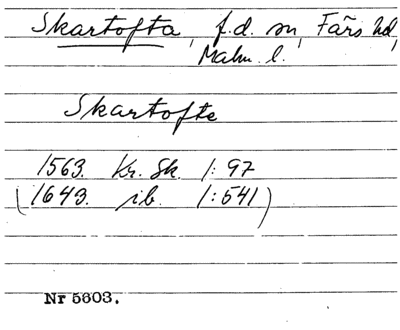 Skartofta, f.d. sn, Färs hd,
Malm. l.
Skartofte
1563. Kr. Sk. 1:97
(1643. ib. 1:541)
Nr 5603.